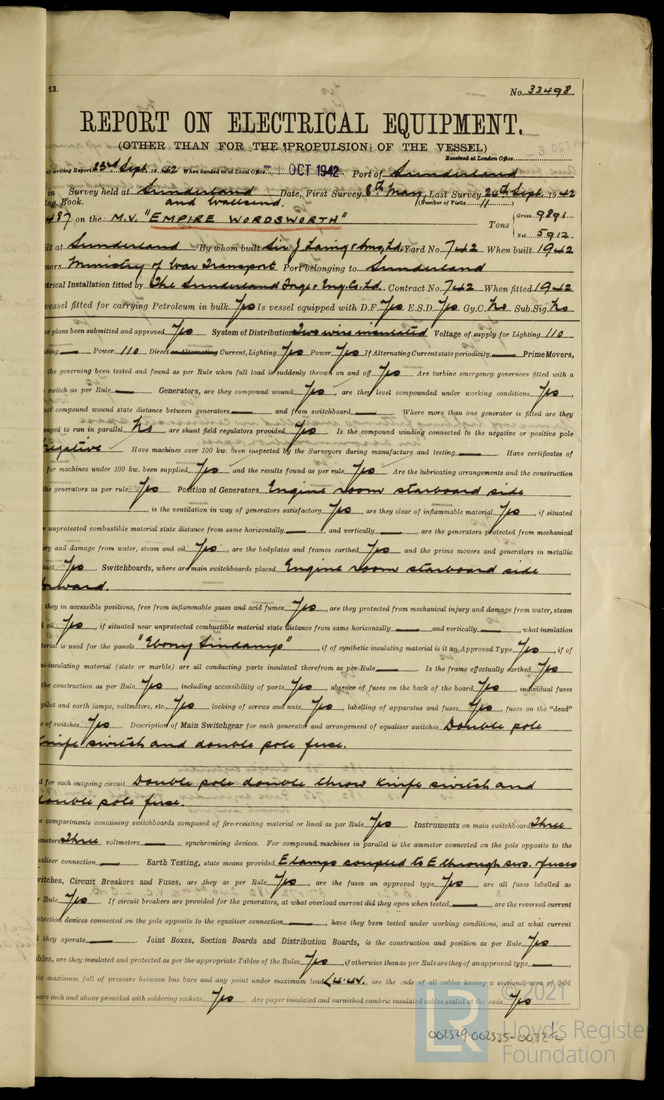 13.
No. 33498
REPORT ON ELECTRICAL EQUIPMENT.
(OTHER THAN FOR THE PROPULSION OF THE VESSEL)
Received at London Office
of writing Report 23rd Sept. 1942 When handed in at Local Office 1 OCT 1942 Port of Sunderland
in Survey held at Sunderland Date, First Survey 8th May, Last Survey 26th Sept. 1942
Book. and Wallsend. (Number of Visits 11)
487 on the M.V. "EMPIRE WORDSWORTH" Tons { Gross 9891
Net 5912
ilt at Sunderland By whom built Sir J. Laing & Sons, Ld. Yard No. 742 When built 1942
ners Ministry of War Transport Port belonging to Sunderland
trical Installation fitted by The Sunderland Forge & Eng. Co. Ld. Contract No. 742 When fitted 1942
vessel fitted for carrying Petroleum in bulk Yes Is vessel equipped with D.F. Yes E.S.D. Yes Gy.C. No Sub.Sig. No
e plans been submitted and approved Yes System of Distribution Two wire insulated Voltage of supply for Lighting 110
ting — Power 110 Direct or Alternating Current, Lighting Yes Power Yes If Alternating Current state periodicity — Prime Movers,
the governing been tested and found as per Rule when full load is suddenly thrown on and off Yes Are turbine emergency governors fitted with a
switch as per Rule — Generators, are they compound wound Yes, are they level compounded under working conditions Yes,
ot compound wound state distance between generators — and from switchboard — Where more than one generator is fitted are they
nged to run in parallel No, are shunt field regulators provided Yes Is the compound winding connected to the negative or positive pole
Negative Have machines over 100 kw. been inspected by the Surveyors during manufacture and testing — Have certificates of
for machines under 100 kw. been supplied Yes and the results found as per rule Yes Are the lubricating arrangements and the construction
the generators as per rule Yes Position of Generators Engine room starboard side
, is the ventilation in way of generators satisfactory Yes, are they clear of inflammable material Yes, if situated
unprotected combustible material state distance from same horizontally — and vertically —, are the generators protected from mechanical
ry and damage from water, steam and oil Yes, are the bedplates and frames earthed Yes and the prime movers and generators in metallic
act Yes Switchboards, where are main switchboards placed Engine room starboard side
forward.
they in accessible positions, free from inflammable gases and acid fumes Yes, are they protected from mechanical injury and damage from water, steam
oil Yes, if situated near unprotected combustible material state distance from same horizontally — and vertically —, what insulation
terial is used for the panels "Ebony Sindanyo", if of synthetic insulating material is it an Approved Type Yes, if of
i-insulating material (slate or marble) are all conducting parts insulated therefrom as per Rule — Is the frame effectually earthed Yes
the construction as per Rule Yes, including accessibility of parts Yes, absence of fuses on the back of the board Yes, individual fuses
pilot and earth lamps, voltmeters, etc. Yes locking of screws and nuts Yes, labelling of apparatus and fuses Yes, fuses on the "dead"
e of switches Yes Description of Main Switchgear for each generator and arrangement of equaliser switches Double pole
knife switch and double pole fuse.
d for each outgoing circuit Double pole double throw knife switch and
double pole fuse.
compartments containing switchboards composed of fire-resisting material or lined as per Rule Yes Instruments on main switchboard Three
meters Three voltmeters — synchronising devices. For compound machines in parallel is the ammeter connected on the pole opposite to the
aliser connection — Earth Testing, state means provided E lamps coupled to E through sws. & fuses
witches, Circuit Breakers and Fuses, are they as per Rule Yes, are the fuses an approved type Yes, are all fuses labelled as
r Rule Yes If circuit breakers are provided for the generators, at what overload current did they open when tested —, are the reversed current
otection devices connected on the pole opposite to the equaliser connection —, have they been tested under working conditions, and at what current
l they operate — Joint Boxes, Section Boards and Distribution Boards, is the construction and position as per Rule Yes
bles, are they insulated and protected as per the appropriate Tables of the Rules Yes, if otherwise than as per Rule are they of an approved type —
te maximum fall of pressure between bus bars and any point under maximum load, are the ends of all cables having a sectional area of 0.04
uare inch and above provided with soldering sockets Yes Are paper insulated and varnished cambric insulated cables sealed at the ends Yes
© 2021
LR Lloyd's Register
Foundation